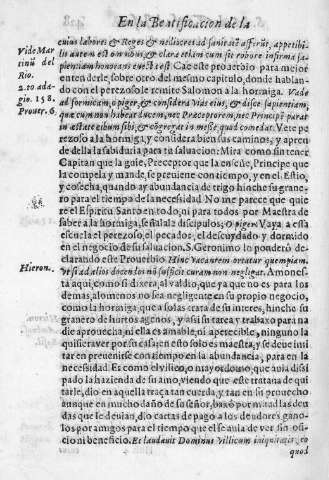 En la Beatificacion de la
cuius labores & Reges & mediocres ad sanitatē afferūt, appetibi-
lis autem est omnibus, & clara etsi cum sit robore infirma sa-
pientiam honorans euecta est. Cae este prouerbio para mejor
entenderle, sobre otro del mismo capitulo, donde hablan-
do con el perezoso le remite Salomon a la hormiga. Vade
ad formicam, o piger, & considera vias eius, & disce sapientiam,
que cum non habeat ducem, nec Præceptorem, nec Principē parat
in æstate cibum sibi, & cōgregat in messe quod comedat. Vete pe
rezoso a la hormiga, y considera bien sus caminos, y apren
de della la sabiduria para tu saluacion: Mira como sin tener
Capitan que la guie, Preceptor que la enseñe, Principe que
la compela y mande, se preuiene con tiempo, y en el Estio,
y cosecha, quando ay abundancia de trigo hinche su grane-
ro para el tiempo de la necesidad. No me parece que quie
re el Espiritu Santo en todo, ni para todos por Maestra de
saber a la hormiga, señala los discipulos; O piger. Vaya a esta
escuela el perezoso, el pecador, el descuydado y dormido
en el negocio de su saluacion. S. Geronimo lo ponderò de-
clarando este Prouerbio. Hinc vacantem orcatur quempiam,
vt si ad alios docendos nō sufficit curam non negligat. Amones-
ta aqui, como si dixera, al valdio, que ya que no es para los
demas, alomenos no sea negligente en su propio negocio,
como la hormiga, que a solas trata de su interes, hinche su
granero de hurtos agenos, y assi su tarea y trabaxo para na
die aprouecha, ni ella es amable, ni apetecible, ninguno la
quisiera ver por su casa; en esto solo es maestra, y se deue imi
tar en preuenirse con tiempo en la abundancia, para en la
necesidad. Es como el vilico, o mayordomo, que auia disi
pado la hazienda de su amo, viendo que este trataua de qui
tarle, dio en aquella traça tan cuerda, y tan en su prouecho
aunque en mucho daño de su señor, baxò por mitad las deu
das que le deuian, dio cartas de pago a los deudores gano-
los por amigos para el tiempo que el se auia de ver sin ofi-
cio ni beneficio. Et laudauit Dominus Villicum iniquitatis, eo
quod
Vide Mar
tinū del
Rio.
2. to ada-
gio. 158.
Prouer. 6.
Hieron.